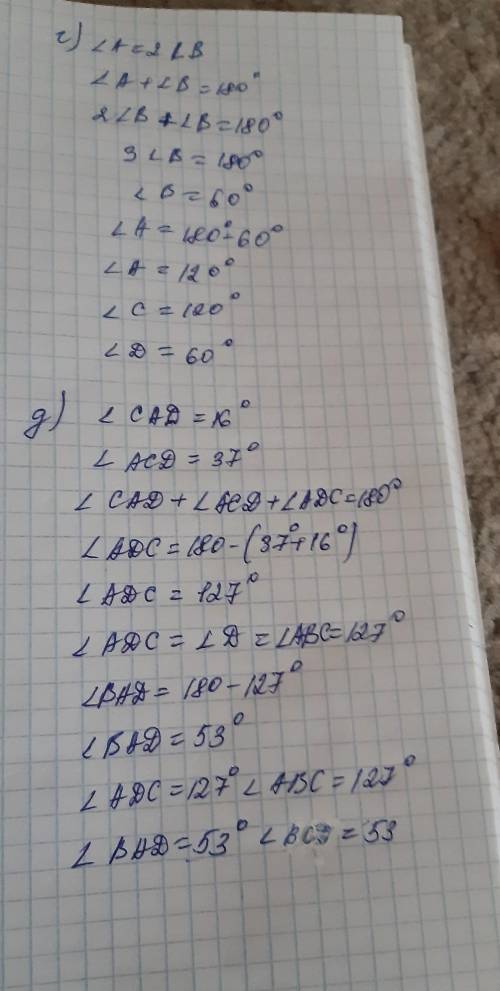 г) ∠A = 2∠B
∠A + ∠B = 180°
2∠B + ∠B = 180°
3∠B = 180°
∠B = 60°
∠A = 180° - 60°
∠A = 120°
∠C = 120°
∠D = 60°
д) ∠CAD = 16°
∠ACD = 37°
∠CAD + ∠ACD + ∠ADC = 180°
∠ADC = 180 - (37° + 16°)
∠ADC = 127°
∠ADC = ∠D = ∠ABC = 127°
∠BAD = 180 - 127°
∠BAD = 53°
∠ADC = 127° ∠ABC = 127°
∠BAD = 53° ∠BCD = 53